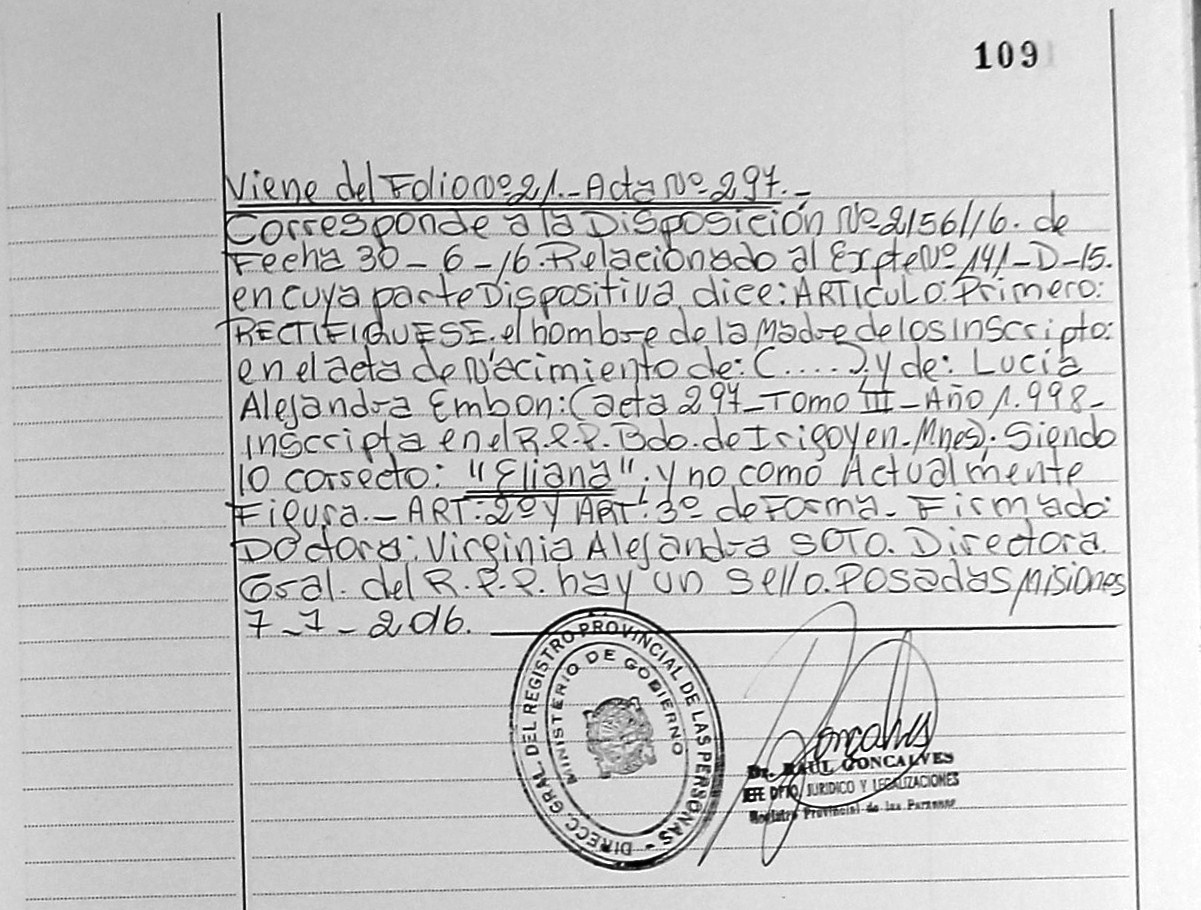 109
Viene del Folio Nº 21.- Acta Nº 297.-
Corresponde a la Disposición Nº 2156/16. de
Fecha 30-6-16. Relacionado al Expte Nº 141-D-15.
en cuya parte Dispositiva dice: ARTICULO: Primero:
RECTIFIQUESE. el nombre de la Madre de los inscripto:
en el acta de Nacimiento de: C.....). y de: Lucia
Alejandra Embon: (acta 297-Tomo III-Año 1.998-
inscripta en el R.P.P. Bdo. de Irigoyen. Mnes). Siendo
lo correcto: "Eliana". y no como Actualmente
Figura.- ART: 2º y ART: 3º de Forma. Firmado:
Doctora: Virginia Alejandra SOTO. Directora.
Gral. del R.P.P. hay un sello. Posadas Misiones
7-7-2016.
DIRECC. GRAL. DEL REGISTRO PROVINCIAL DE LAS PERSONAS -
MINISTERIO DE GOBIERNO
Goncalves
Dr. RAUL GONCALVES
JEFE DPTO. JURIDICO Y LEGALIZACIONES
Registro Provincial de las Personas